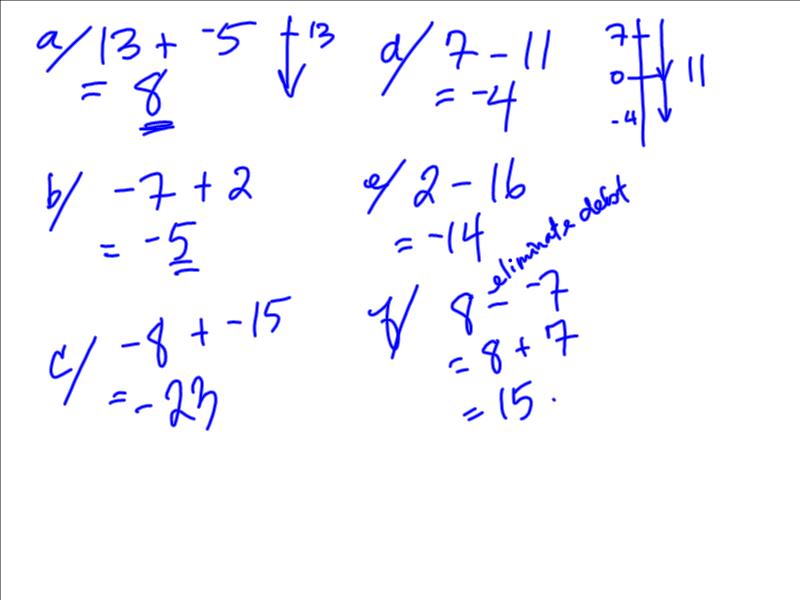 a/ 13 + -5
= 8
13
b/ -7 + 2
= -5
c/ -8 + -15
= -23
d/ 7 - 11
= -4
7
0
-4
11
e/ 2 - 16
= -14
eliminate debt
f/ 8 - -7
= 8 + 7
= 15 .